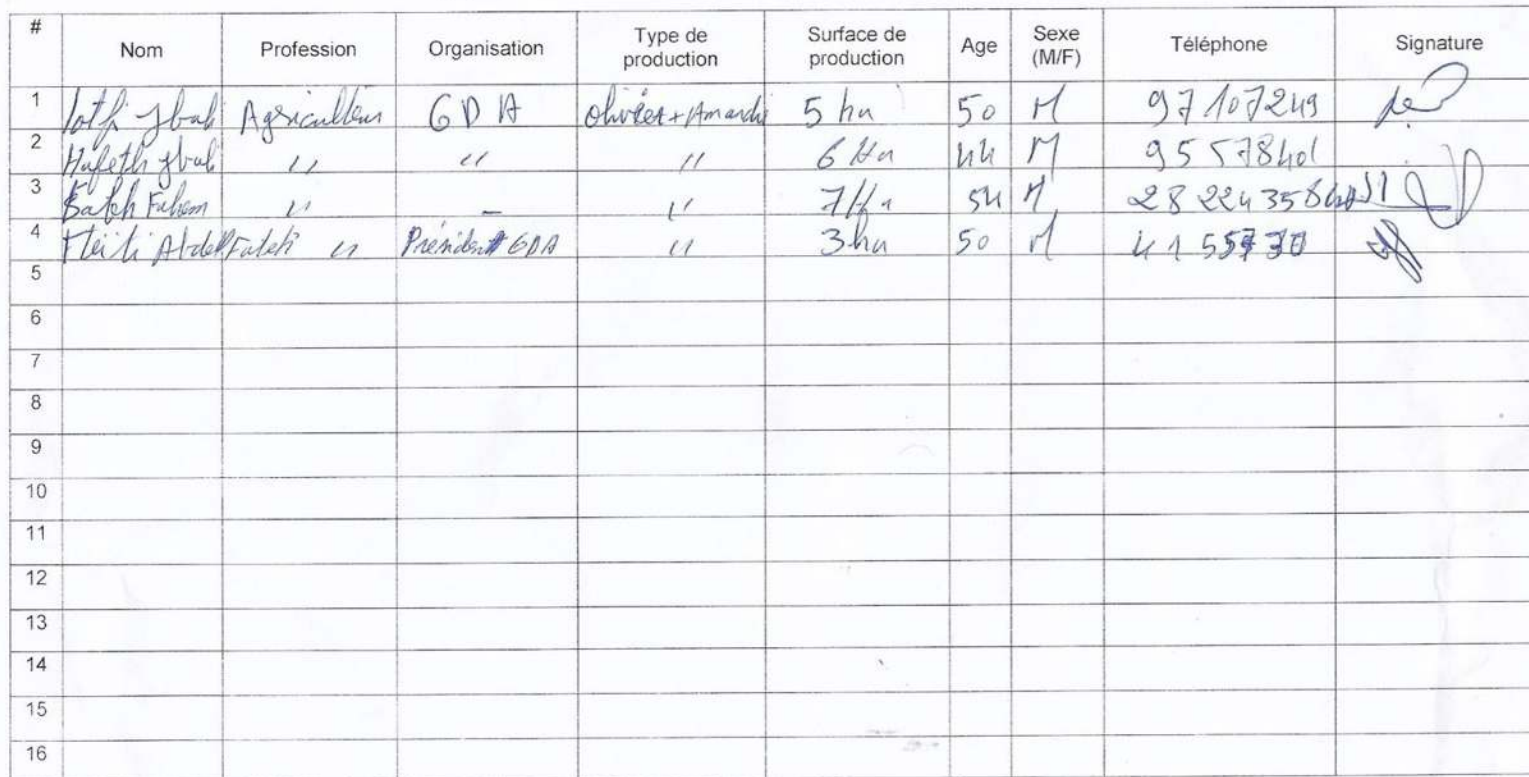 # Nom Profession Organisation Type de production Surface de production Age Sexe (M/F) Téléphone Signature
1 lotfi Jbali Agriculteur GDA olivier + Amandi 5 ha 50 M 97107249
2 Hafeth Jbali " " " 6 Ha 44 M 95578401
3 Salah Fahem " - " 7 Ha 54 M 28 224 358
4 Abdel Fateh " Président GDA " 3 ha 50 M
5
6
7
8
9
10
11
12
13
14
15
16